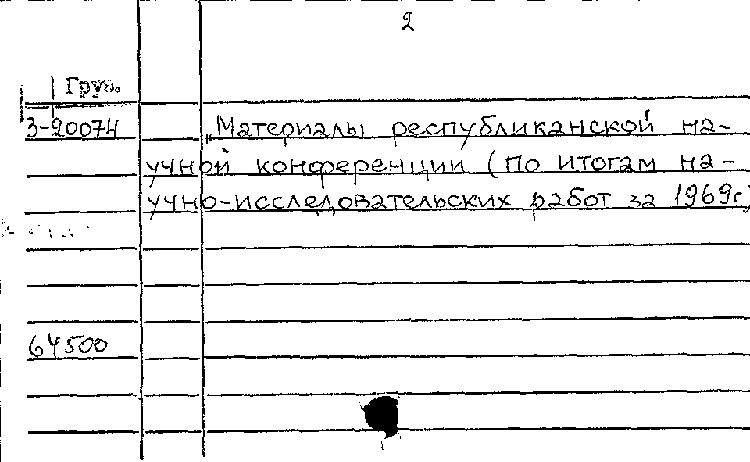 2
Груз.
3-20074
„Материалы республиканской на-
учной конференции (по итогам на-
учно-исследовательских работ за 1969г)
64500